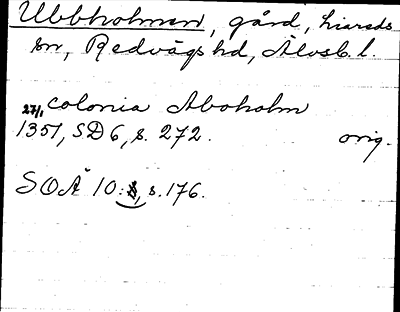 Ubbholmen, gård, Liareds
sn, Redvägs hd, Älvsb. l.
27/1 colonia Aboholm
1351, SD 6, s. 272. orig.
SOÄ 10: s. 176.